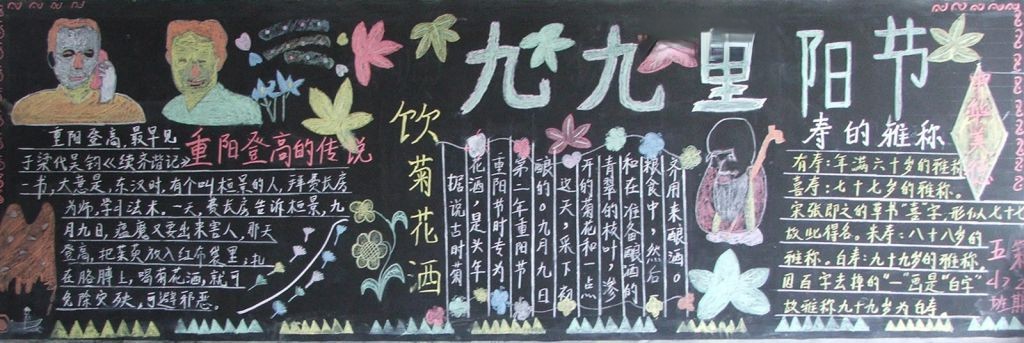 九九里阳节
重阳登高的传说
重阳登高,最早见
于梁代吴钧《续齐谐记》
一书,大意是,东汉时,有个叫桓景的人,拜费长房
为师,学习法术。一天,费长房告诉桓景,九
月九日,瘟魔又要出来害人,那天
登高,把茱萸放入红布袋里,扎
在胳膊上,喝菊花酒,就可
免除灾殃,可避邪恶。
饮菊花酒
据说古时菊
花酒,是头年
重阳节时专为
第二年重阳节
酿的。九月九日
这天,采下初
开的菊花和一点
青翠的枝叶,掺
和在准备酿酒的
粮食中,然后
齐用来酿酒。
寿的雅称
有寿:年满六十岁的雅称
喜寿:七十七岁的雅称。
宋张即之的草书“喜”字,形似七十七
故此得名。米寿:八十八岁的
雅称。白寿:九十九岁的雅称,
因百字去掉的“一”画是“白”字
故雅称九十九岁为白寿